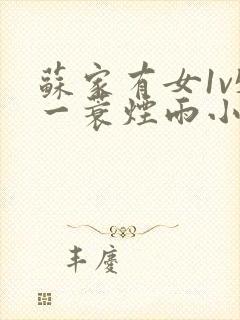 蘇家有女1v
一蓑煙雨小
丰慶